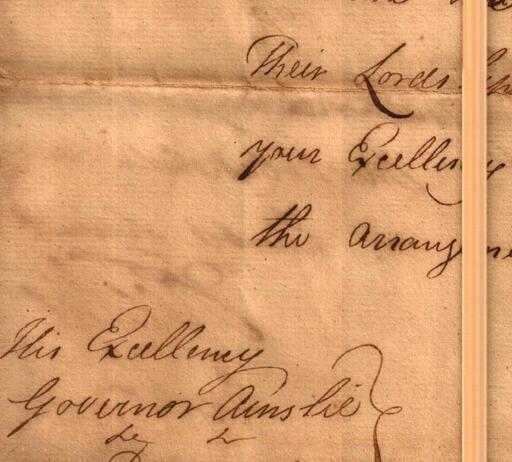 Their Lords
your Excellency
the arrang
His Excellency
Governor Ainslie